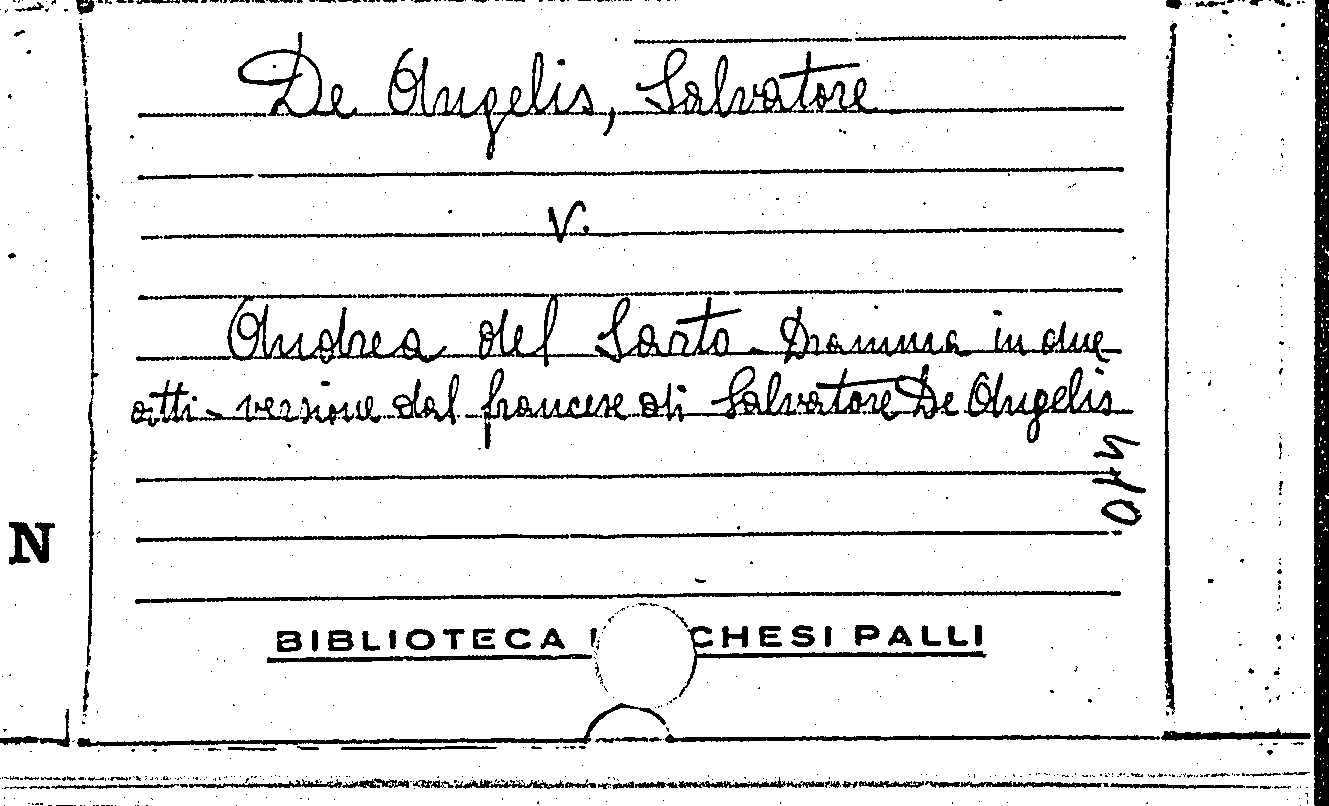 De Angelis, Salvatore
V.
Andrea del Sarto - Dramma in due
atti - versione dal francese di Salvatore De Angelis
N
BIBLIOTECA CHESI PALLI